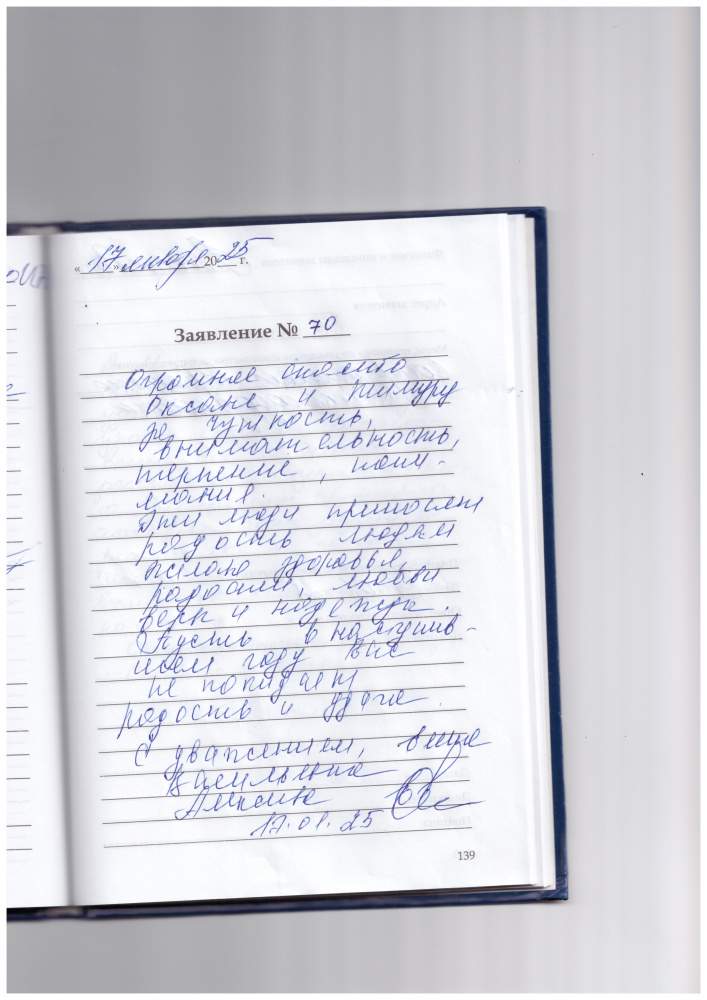 «17» января 2025 г.
Заявление № 70
Огромное спасибо
Оксане и Тимуру
за чуткость,
внимательность,
терпение, пони-
мание.
Эти люди приносят
радость людям
желаю здоровья,
радости, любви
веры и надежды.
Пусть в наступив-
шем году Вас
не покидает
радость и удача.
С уважением, ваша
17.01.25
139